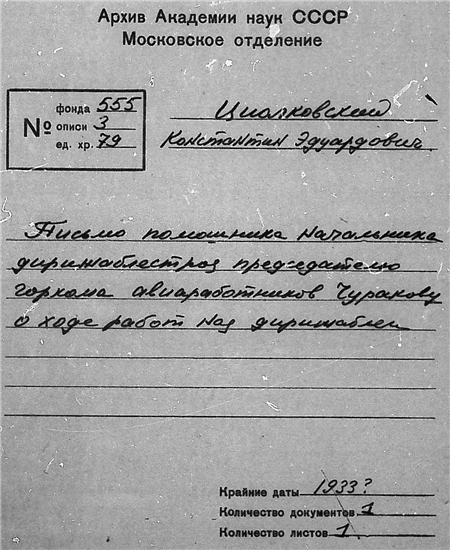 Архив Академии наук СССР
Московское отделение
№
фонда 555
описи 3
ед. хр. 79
Циолковский
Константин Эдуардович.
Письмо помошника начальника
дирижаблестроя председателю
горкома авиаработников Чуракову
о ходе работ над дирижаблем
Крайние даты 1933?
Количество документов 1
Количество листов 1